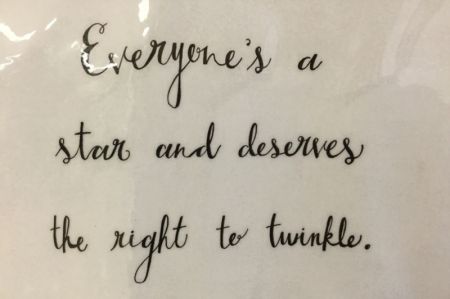 Everyone's a
star and deserves
the right to twinkle.